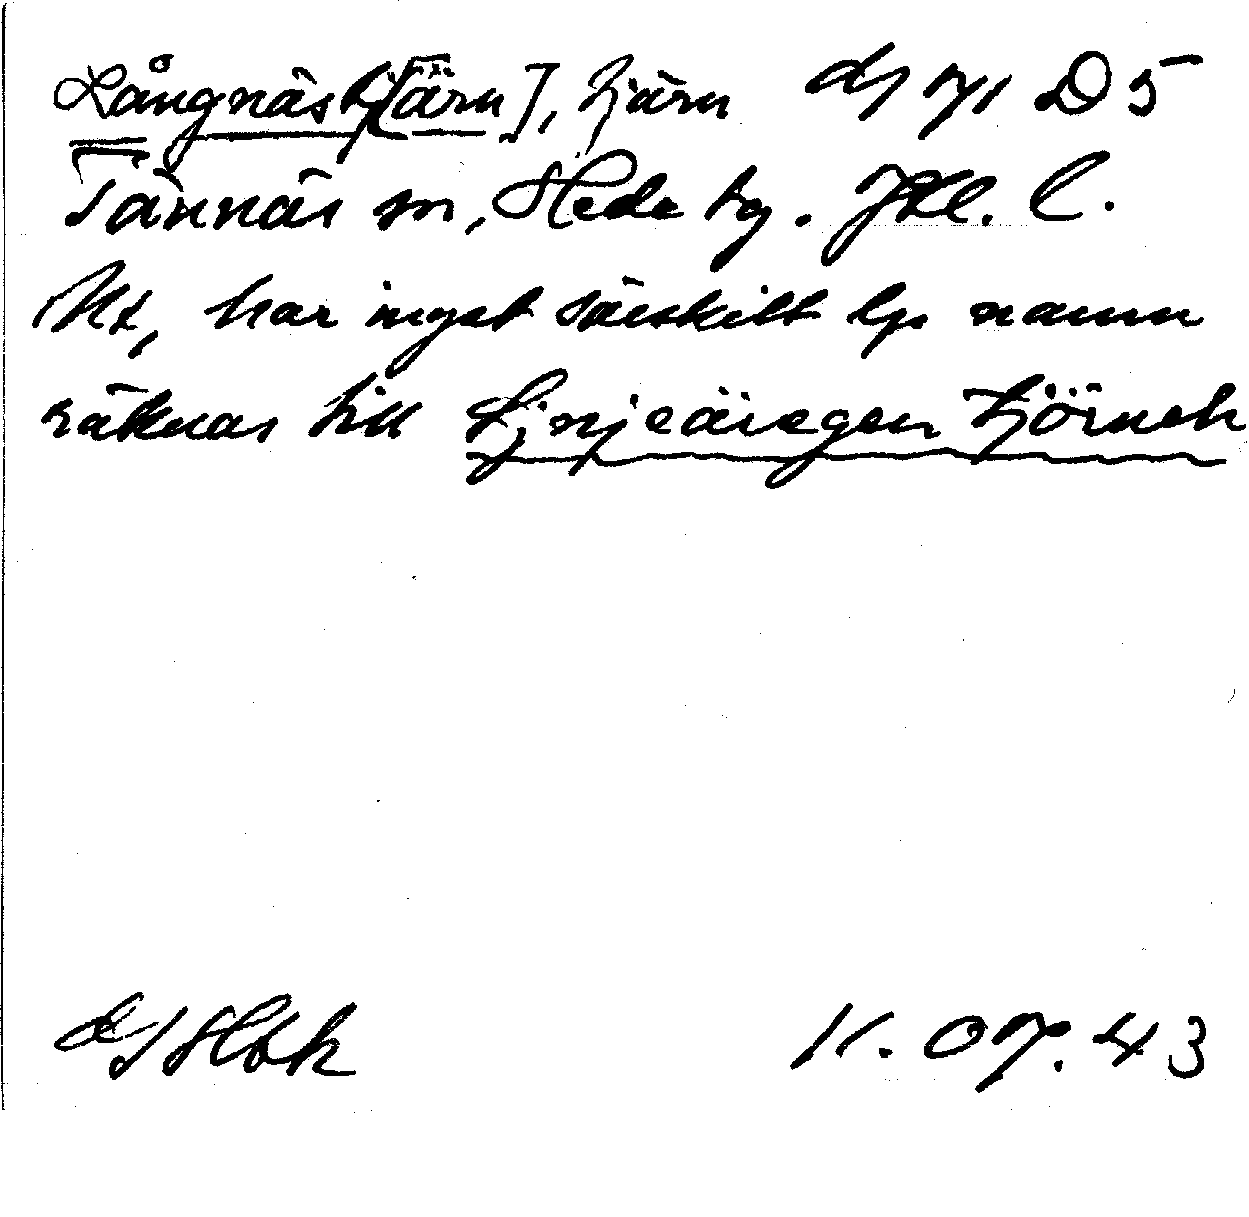 Långnästj[ärn], tjärn D 5
Tännäs sn, Hede tg. Jtl. l.
Ut, har inget särskilt lp namn
räknas till tjnjeäregen tjörneh
11. 07. 43